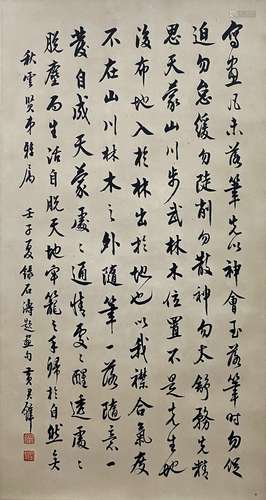 寫畫凡未落筆先以神會至落筆時勿促
迫勿怠緩勿陡削勿散神勿太舒務先精
思天蒙山川步武林木位置不是先生地
後布地入於林出於地也以我襟合氣度
不在山川林木之外隨筆一落隨意一
發自成天蒙處處通情處處醒透處處
脫塵而生活自脫天地牢籠之手歸於自然矣
秋雲賢弟雅属
壬子夏錄石濤題畫句 黃